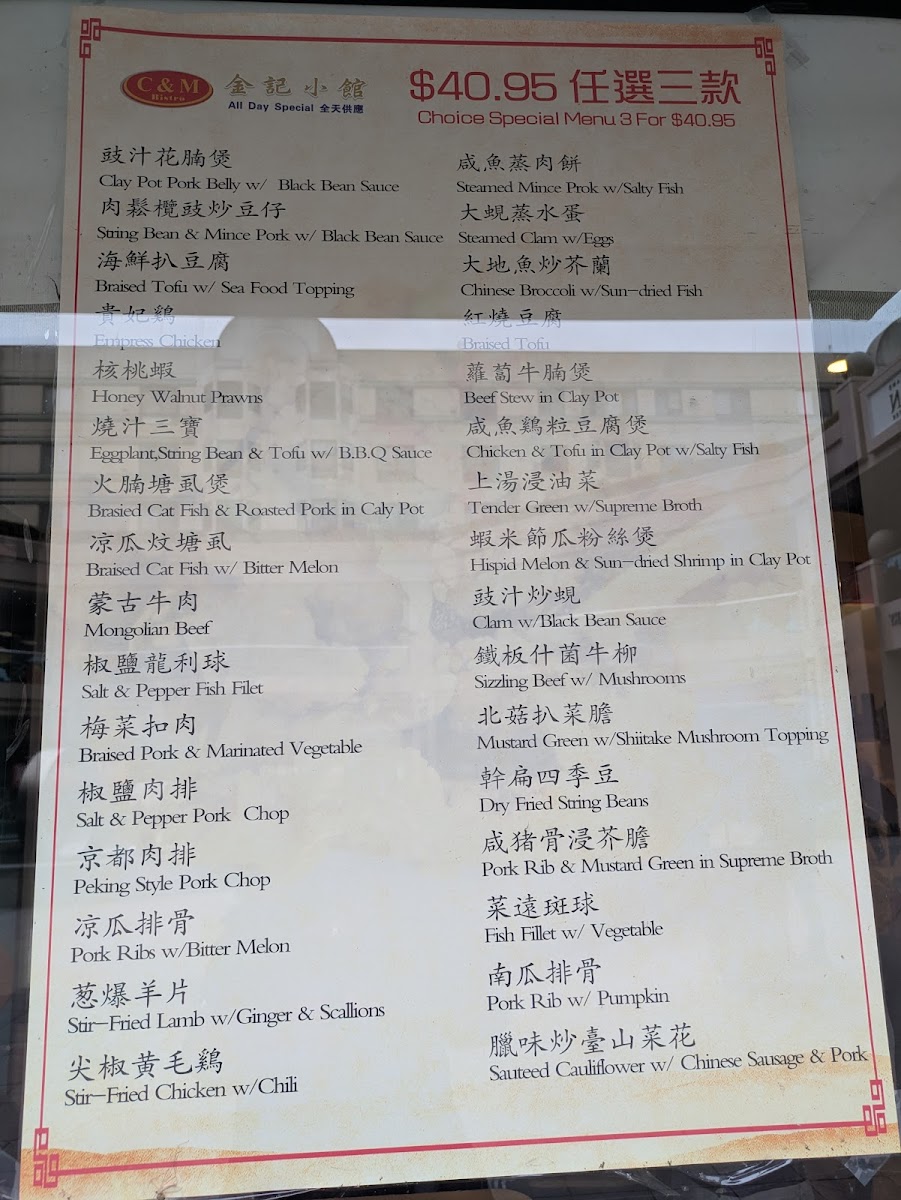 C & M
Bistro
金記小館
All Day Special 全天供應
$40.95 任選三款
Choice Special Menu 3 For $40.95
豉汁花腩煲
Clay Pot Pork Belly w/ Black Bean Sauce
肉鬆欖豉炒豆仔
String Bean & Mince Pork w/ Black Bean Sauce
海鮮扒豆腐
Braised Tofu w/ Sea Food Topping
貴妃鷄
Empress Chicken
核桃蝦
Honey Walnut Prawns
燒汁三寶
Eggplant,String Bean & Tofu w/ B.B.Q Sauce
火腩塘虱煲
Brasied Cat Fish & Roasted Pork in Caly Pot
凉瓜炆塘虱
Braised Cat Fish w/ Bitter Melon
蒙古牛肉
Mongolian Beef
椒鹽龍利球
Salt & Pepper Fish Filet
梅菜扣肉
Braised Pork & Marinated Vegetable
椒鹽肉排
Salt & Pepper Pork Chop
京都肉排
Peking Style Pork Chop
凉瓜排骨
Pork Ribs w/Bitter Melon
葱爆羊片
Stir-Fried Lamb w/Ginger & Scallions
尖椒黄毛鷄
Stir-Fried Chicken w/Chili
咸魚蒸肉餅
Steamed Mince Prok w/Salty Fish
大蜆蒸水蛋
Steamed Clam w/Eggs
大地魚炒芥蘭
Chinese Broccoli w/Sun-dried Fish
紅燒豆腐
Braised Tofu
蘿蔔牛腩煲
Beef Stew in Clay Pot
咸魚鷄粒豆腐煲
Chicken & Tofu in Clay Pot w/Salty Fish
上湯浸油菜
Tender Green w/Supreme Broth
蝦米節瓜粉絲煲
Hispid Melon & Sun-dried Shrimp in Clay Pot
豉汁炒蜆
Clam w/Black Bean Sauce
鐵板什菌牛柳
Sizzling Beef w/ Mushrooms
北菇扒菜膽
Mustard Green w/Shiitake Mushroom Topping
幹扁四季豆
Dry Fried String Beans
咸猪骨浸芥膽
Pork Rib & Mustard Green in Supreme Broth
菜遠斑球
Fish Fillet w/ Vegetable
南瓜排骨
Pork Rib w/ Pumpkin
臘味炒臺山菜花
Sauteed Cauliflower w/ Chinese Sausage & Pork